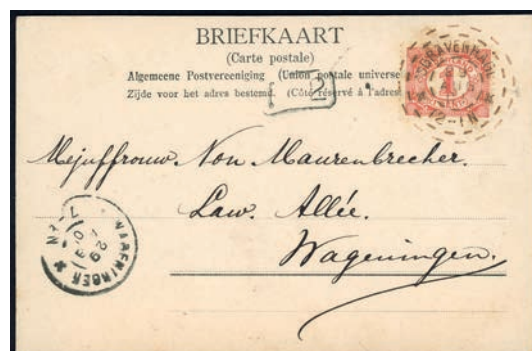 BRIEFKAART
(Carte postale)
Algemeene Postvereeniging (Union postale universe
Zijde voor het adres bestemd. (Côté réservé à l'adres
2
'SGRAVENHAGE
1
12-1N
Mejuffrouw. Non Maurenbrecher.
Law. Allée.
Wageningen.
WAGENINGEN